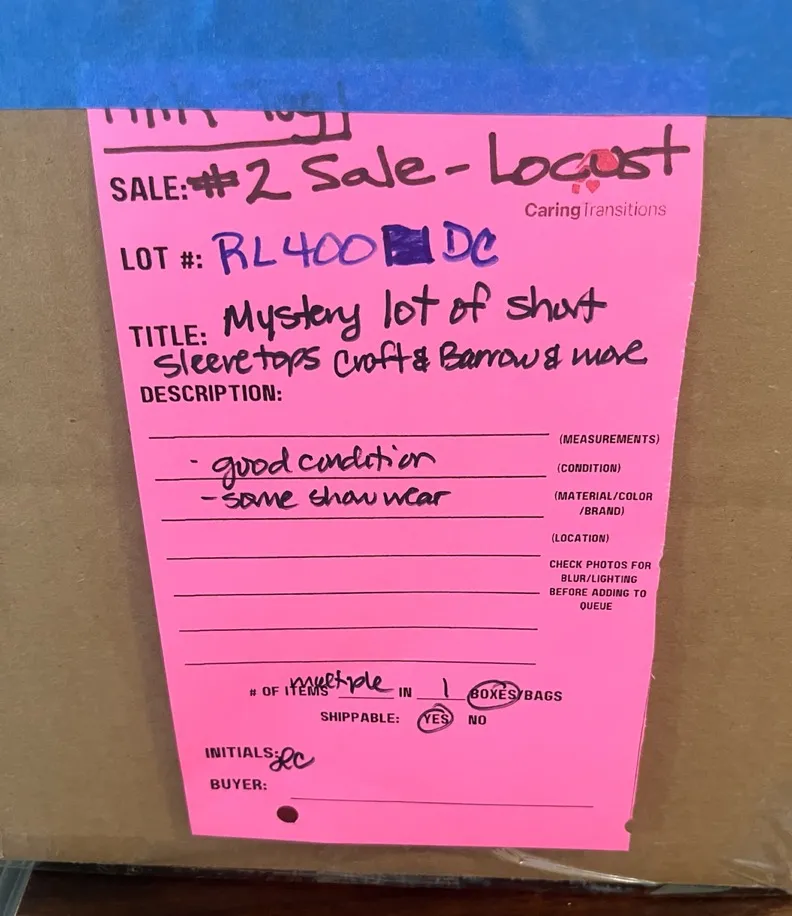 SALE: #2 Sale - Locust
CaringTransitions
LOT #: RL400 DC
TITLE: Mystery lot of short
sleeve tops Croft & Barrow & more
DESCRIPTION:
(MEASUREMENTS)
- good condition (CONDITION)
- some show wear (MATERIAL/COLOR
/BRAND)
(LOCATION)
CHECK PHOTOS FOR
BLUR/LIGHTING
BEFORE ADDING TO
QUEUE
# OF ITEMS multiple IN 1 BOXES/BAGS
SHIPPABLE: YES NO
INITIALS:
BUYER: